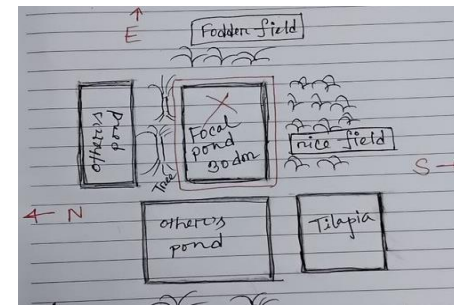 E
Fodder field
other's pond
Tree
X
Focal
pond
30 dm
rice field
S
N
other's
pond
Tilapia